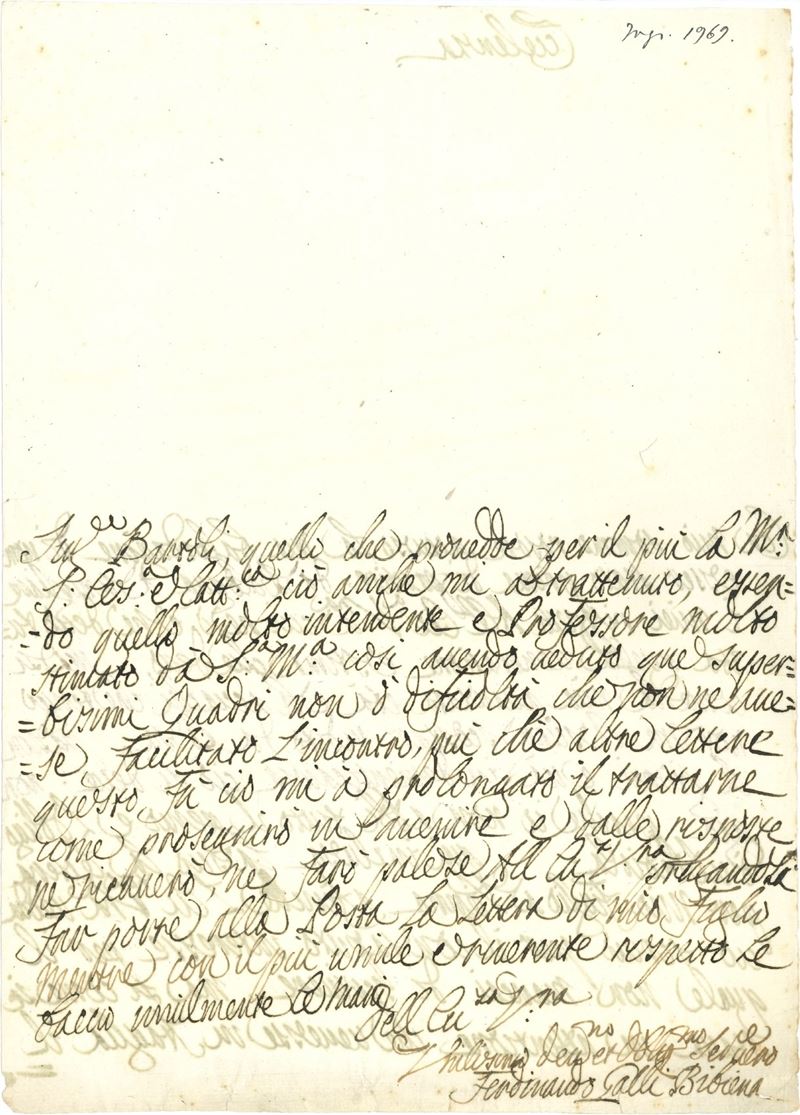 1969.
Bartoli, quello che provedde per il più la M.ª
S. Ces.ª e Catt.ca ciò anche mi à trattenuto, essen=
=do quello molto intendente e Professore molto
stimato dà S.ª M.ª così avendo veduto que super=
=bisimi Quadri non ò dificoltà che non ne ave=
=se facilitato L'incontro, più chè altre lettere
questo fà ciò mi à prolongato il trattarne
come proseguirò in avenire e dalle risposte
ne ricaverò, ne farò palese All V.ra
Far porre alla Posta La Lettera di mio Figlio
Mentre con il più umile e riverente rispetto Le
faccio umilmente Le
Dell V.ra
Humilissimo
Ferdinando Galli Bibiena